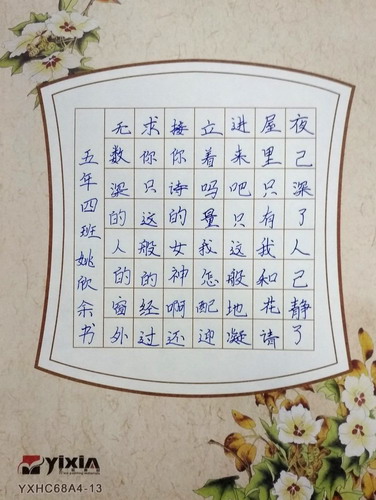 夜已深了人已静了
屋里只有我和花请
进来吧只这般地凝
立着吗量我怎配迎
接你诗的女神啊还
求你只这般的经过
无数深的人的窗外
五年四班姚欣余书
yixin
YXHC68A4-13